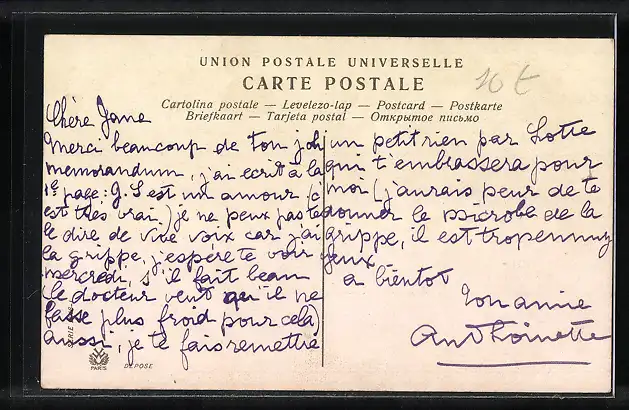 UNION POSTALE UNIVERSELLE
CARTE POSTALE
Cartolina postale — Levelezo-lap — Postcard — Postkarte
Briefkaart — Tarjeta postal — Открытое письмо
10 €
Chère Jane
Merci beaucoup de ton joli
memorandum, j'ai ecrit à la
1e page: G. S est un amour (c'
est très vrai.) je ne peux pas te
le dire de vive voix car j'ai
la grippe, j'espère te voir
mercredi, s'il fait beau
(le docteur veut qu'il ne
fasse plus froid pour cela)
aussi, je te fais remettre
un petit rien par Lotte
qui t'embrassera pour
moi (j'aurais peur de te
donner le microbe de la
grippe, il est trop ennuy
eux
a bientot
Ton amie
Anthoinette
SERIE
PARIS
DÉPOSÉ